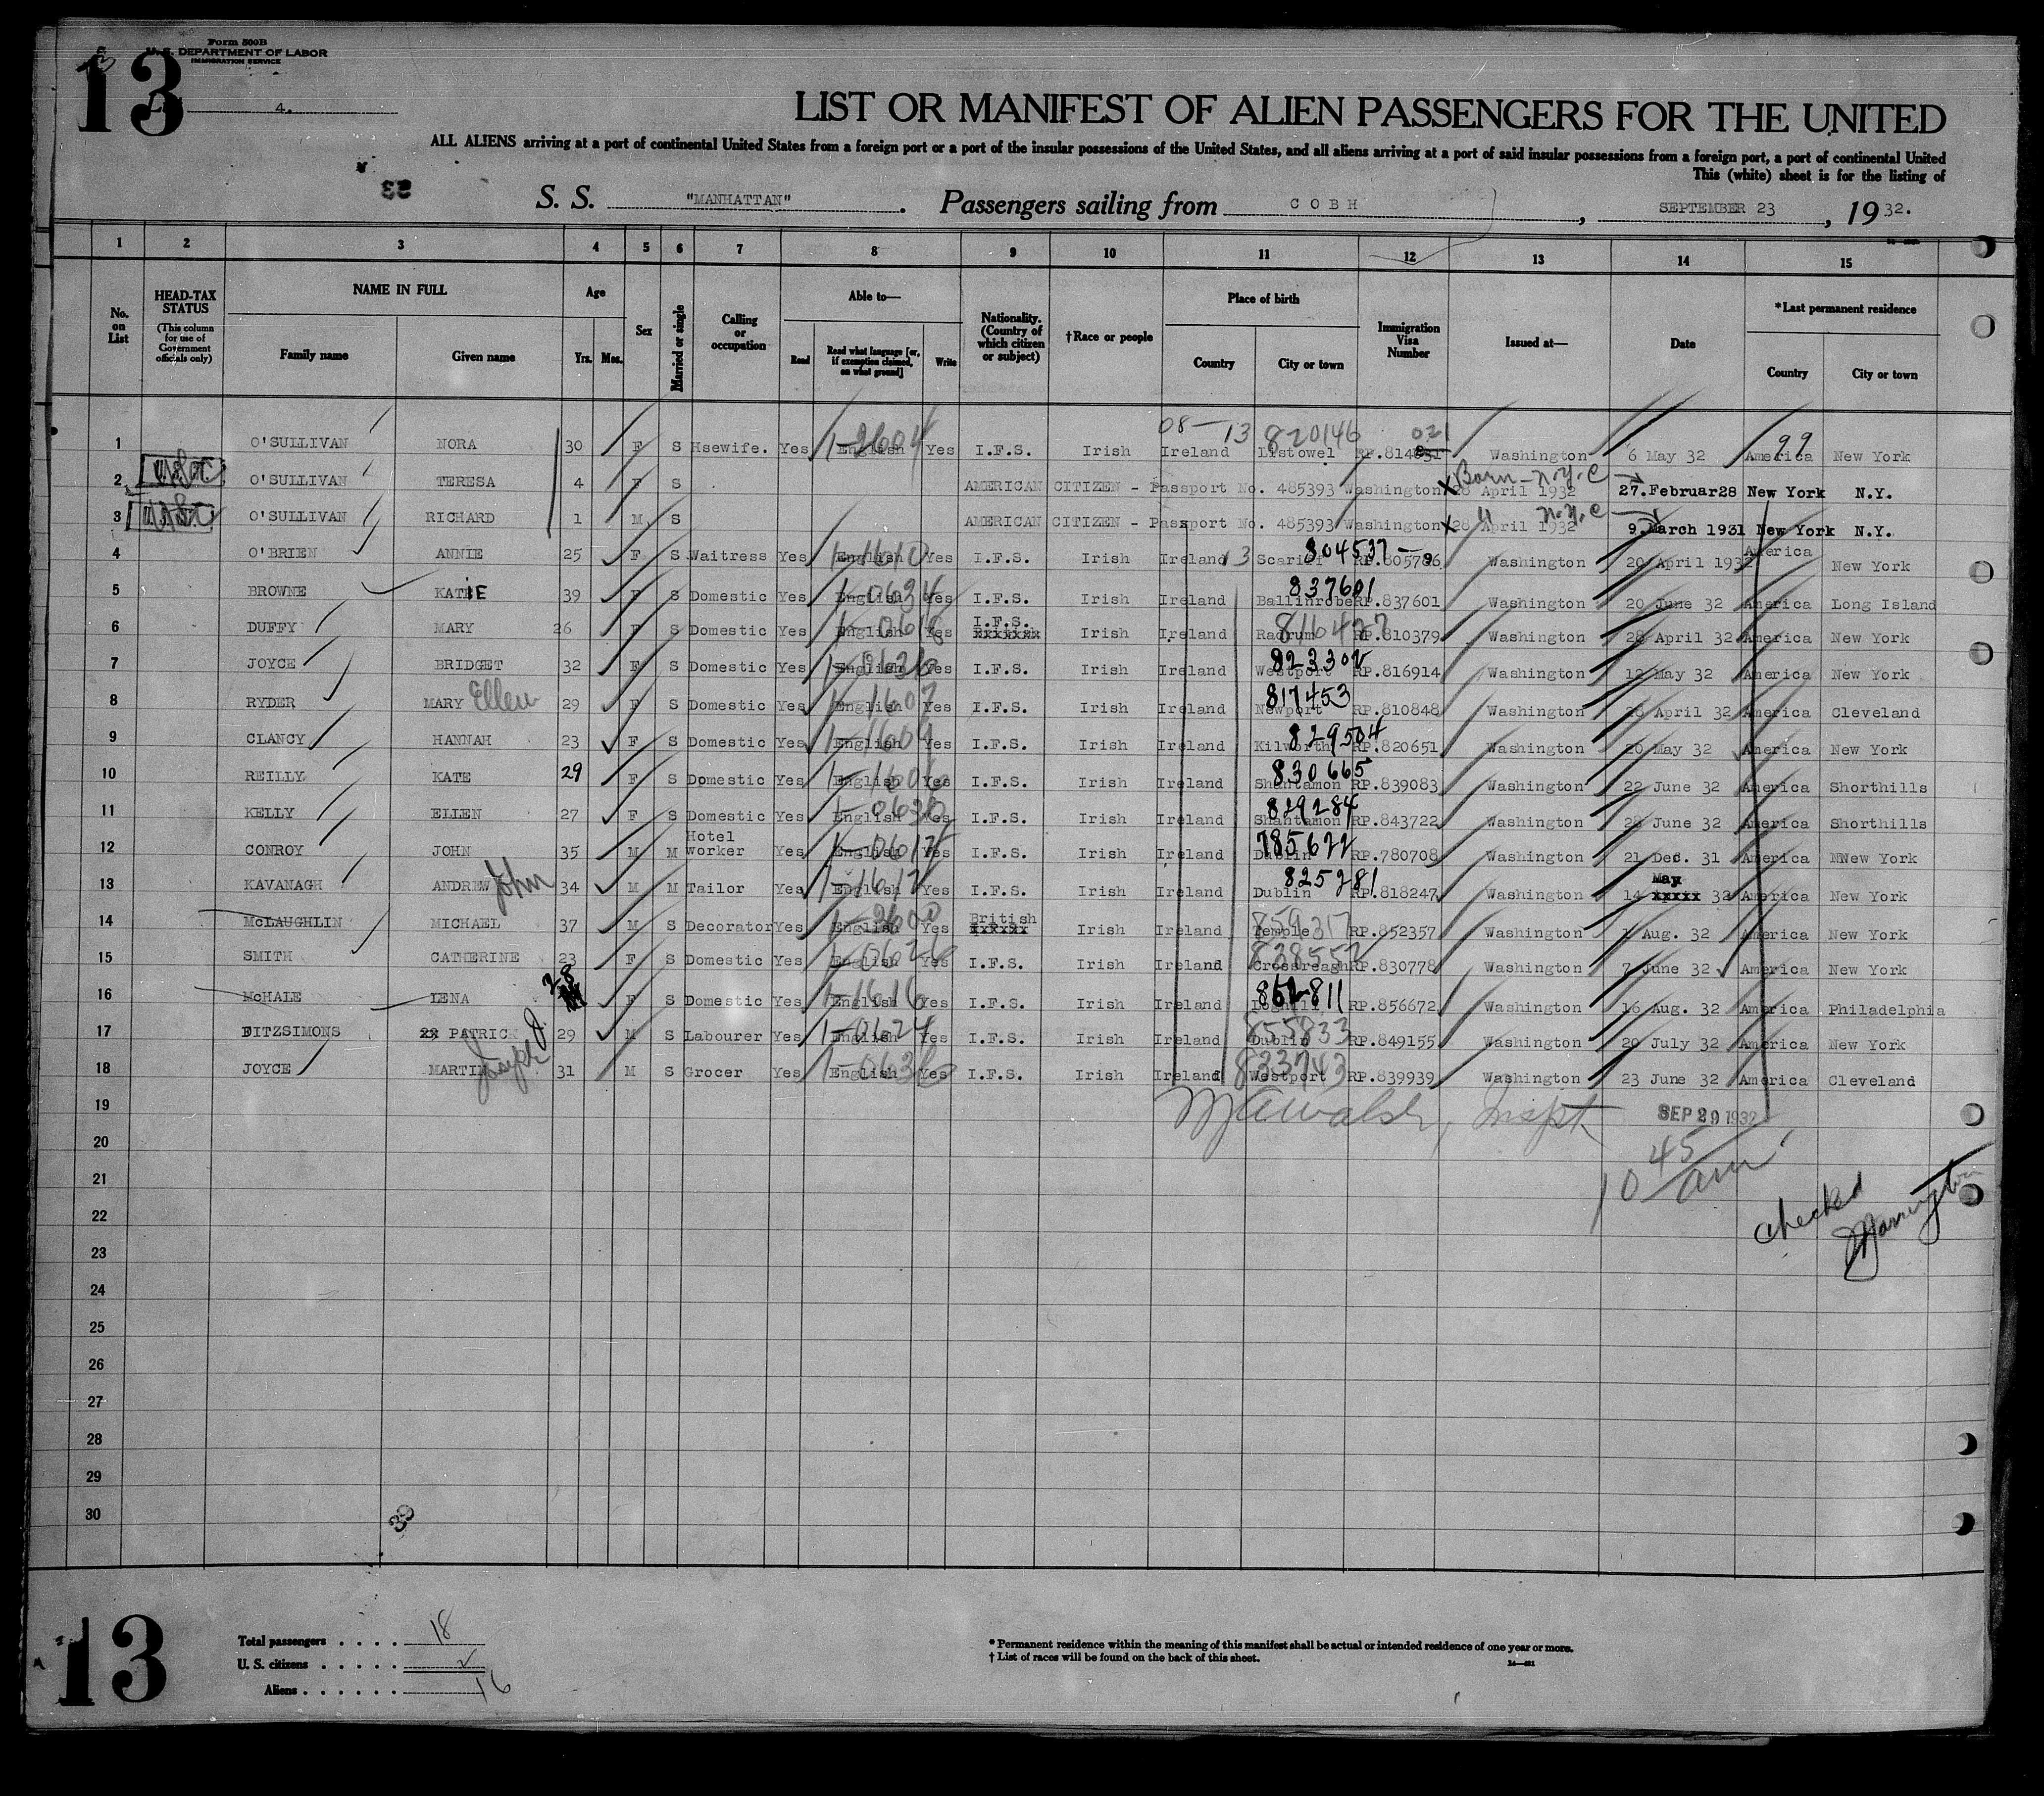 13
Form 500B
U. S. DEPARTMENT OF LABOR
IMMIGRATION SERVICE
4.
LIST OR MANIFEST OF ALIEN PASSENGERS FOR THE UNITED
ALL ALIENS arriving at a port of continental United States from a foreign port or a port of the insular possessions of the United States, and all aliens arriving at a port of said insular possessions from a foreign port, a port of continental United
This (white) sheet is for the listing of
S. S. "MANHATTAN". Passengers sailing from COBH, SEPTEMBER 23, 1932.
1 2 3 4 5 6 7 8 9 10 11 12 13 14 15
No. on List
HEAD-TAX STATUS (This column for use of Government officials only)
NAME IN FULL
Family name Given name
Age
Yrs. Mos.
Sex
Married or single
Calling or occupation
Able to—
Read Read what language [or, if exemption claimed, on what ground] Write
Nationality. (Country of which citizen or subject)
†Race or people
Place of birth
Country City or town
Immigration Visa Number
Issued at—
Date
*Last permanent residence
Country City or town
08— 13 820146 021 99
1 O'SULLIVAN NORA 30 F S Hsewife. Yes English 1-2604 Yes I.F.S. Irish Ireland Listowel RP.814831 Washington 6 May 32 America New York
Born - N.Y.C
2 O'SULLIVAN TERESA 4 F S AMERICAN CITIZEN - Passport No. 485393 Washington 28 April 1932 27.Februar28 New York N.Y.
" N.Y.C
3 O'SULLIVAN RICHARD 1 M S AMERICAN CITIZEN - Passport No. 485393 Washington 28 April 1932 9.March 1931 New York N.Y.
4 O'BRIEN ANNIE 25 F S Waitress Yes English 1-1610 Yes I.F.S. Irish Ireland 13 804537 RP.805786 Washington 20 April 1932 America New York
5 BROWNE KATIE 39 F S Domestic Yes English 1-0634 Yes I.F.S. Irish Ireland Ballinrobe 837601 RP.837601 Washington 20 June 32 America Long Island
6 DUFFY MARY 26 F S Domestic Yes English Yes I.F.S. xxxxxxx Irish Ireland 816477 RP.810379 Washington 28 April 32 America New York
7 JOYCE BRIDGET 32 F S Domestic Yes English 1-0636 Yes I.F.S. Irish Ireland Westport 823302 RP.816914 Washington 12 May 32 America New York
8 RYDER MARY Ellen 29 F S Domestic Yes English 1-1607 Yes I.F.S. Irish Ireland Newport 817453 RP.810848 Washington 28 April 32 America Cleveland
9 CLANCY HANNAH 23 F S Domestic Yes English 1-1604 Yes I.F.S. Irish Ireland Kilworth 829504 RP.820651 Washington 20 May 32 America New York
10 REILLY KATE 29 F S Domestic Yes English Yes I.F.S. Irish Ireland Shantamon 830665 RP.839083 Washington 22 June 32 America Shorthills
11 KELLY ELLEN 27 F S Domestic Yes English 1-0636 Yes I.F.S. Irish Ireland Shantamon 829284 RP.843722 Washington 28 June 32 America Shorthills
12 CONROY JOHN 35 M M Hotel worker Yes English 1-0617 Yes I.F.S. Irish Ireland Dublin 785622 RP.780708 Washington 21 Dec. 31 America NNew York
13 KAVANAGH ANDREW John 34 M M Tailor Yes English 1-1617 Yes I.F.S. Irish Ireland Dublin 825281 RP.818247 Washington 14 xxxxx May 32 America New York
14 McLAUGHLIN MICHAEL 37 M S Decorator Yes English 1-3600 Yes British xxxxxx Irish Ireland Temple 859317 RP.852357 Washington 1 Aug. 32 America New York
15 SMITH CATHERINE 23 F S Domestic Yes English 1-0626 Yes I.F.S. Irish Ireland Crossreagh 838552 RP.830778 Washington 7 June 32 America New York
16 McHALE LENA 28 F S Domestic Yes English 1-1616 Yes I.F.S. Irish Ireland 862811 RP.856672 Washington 16 Aug. 32 America Philadelphia
17 FITZSIMONS PATRICK J. 29 M S Labourer Yes English 1-0624 Yes I.F.S. Irish Ireland Dublin 855833 RP.849155 Washington 20 July 32 America New York
18 JOYCE MARTIN Joseph 31 M S Grocer Yes English 1-0636 Yes I.F.S. Irish Ireland Westport 833743 RP.839939 Washington 23 June 32 America Cleveland
19 M A Walsh, Inspt. SEP 29 1932
20 10 45 am
21
22 checked
23
24
25
26
27
28
29
30
39
13
Total passengers . . . . 18
U. S. citizens . . . . . 2
Aliens . . . . . . 16
* Permanent residence within the meaning of this manifest shall be actual or intended residence of one year or more.
† List of races will be found on the back of this sheet.